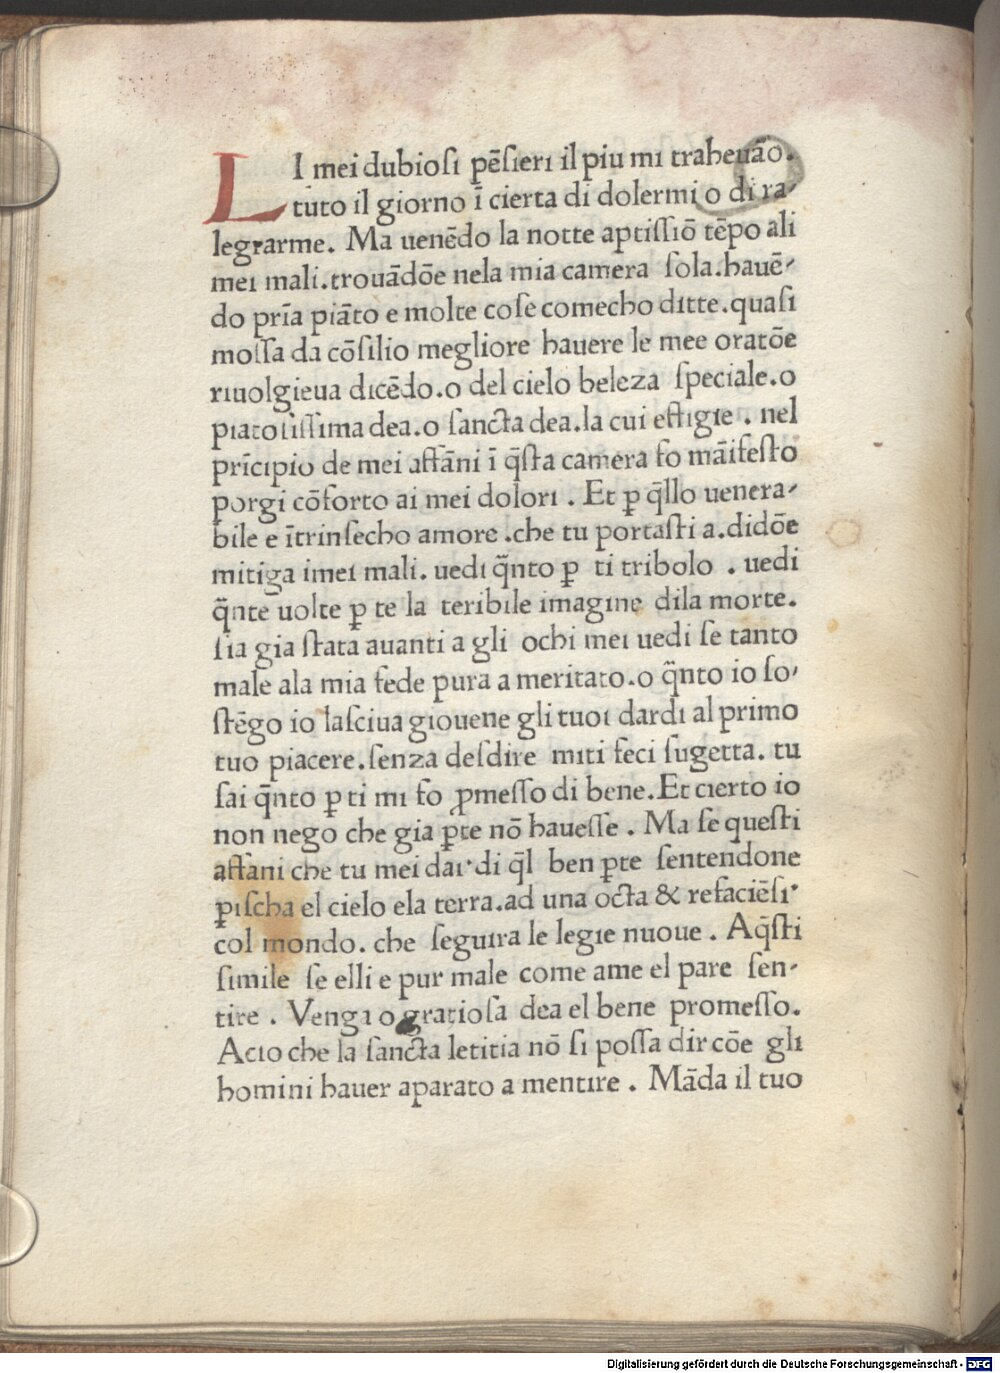 LI mei dubiosi pēsieri il piu mi traheuāo.
tuto il giorno ī cierta di dolermi o di ra-
legrarme. Ma uenēdo la notte aptissiō tēpo ali
mei mali.trouādōe nela mia camera sola.hauē-
do prīa piāto e molte cose comecho ditte.quasi
mossa da cōsilio megliore hauere le mee oratōe
riuolgieua dicēdo.o del cielo beleza speciale.o
piatosissima dea.o sancta dea.la cui effigie . nel
prīcipio de mei affāni ī q̄sta camera fo māifesto
porgi cōforto ai mei dolori . Et ꝑ q̄llo uenera-
bile e ītrinsecho amore .che tu portasti a.didōe
mitiga imei mali. uedi q̄nto ꝑ ti tribolo . uedi
q̄nte uolte ꝑ te la teribile imagine dila morte.
sia gia stata auanti a gli ochi mei uedi se tanto
male ala mia fede pura a meritato.o q̄nto io so-
stēgo io lasciua giouene gli tuoi dardi al primo
tuo piacere.senza desdire miti feci sugetta. tu
sai q̄nto ꝑ ti mi fo ꝓmesso di bene.Et cierto io
non nego che gia ꝑte nō hauesse . Ma se questi
affani che tu mei dardi q̄l ben ꝑte sentendone
ꝑischa el cielo ela terra.ad una octa & refaciēsi
col mondo. che seguira le legie nuoue . Aq̄sti
simile se elli e pur male come ame el pare sen-
tire . Venga o gratiosa dea el bene promesso.
Acio che la sancta letitia nō si possa dir cōe gli
homini hauer aparato a mentire . Māda il tuo
Digitalisierung gefördert durch die Deutsche Forschungsgemeinschaft - DFG